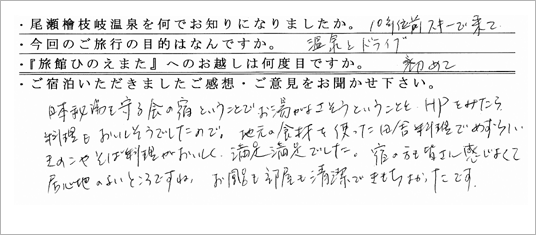 ・尾瀬檜枝岐温泉を何でお知りになりましたか。 10年位前スキーで来て
・今回のご旅行の目的はなんですか。 温泉とドライブ
・『旅館ひのえまた』へのお越しは何度目ですか。 初めて
・ご宿泊いただきましたご感想・ご意見をお聞かせ下さい。
日本秘湯を守る会の宿ということでお湯がよさそうということと、HPをみたら
料理もおいしそうでしたので。地元の食材を使った田舎料理でめずらしい
きのこやそば料理がおいしく、満足満足でした。宿の方も皆さん感じよくて
居心地のよいところですね。お風呂も部屋も清潔できもちよかったです。